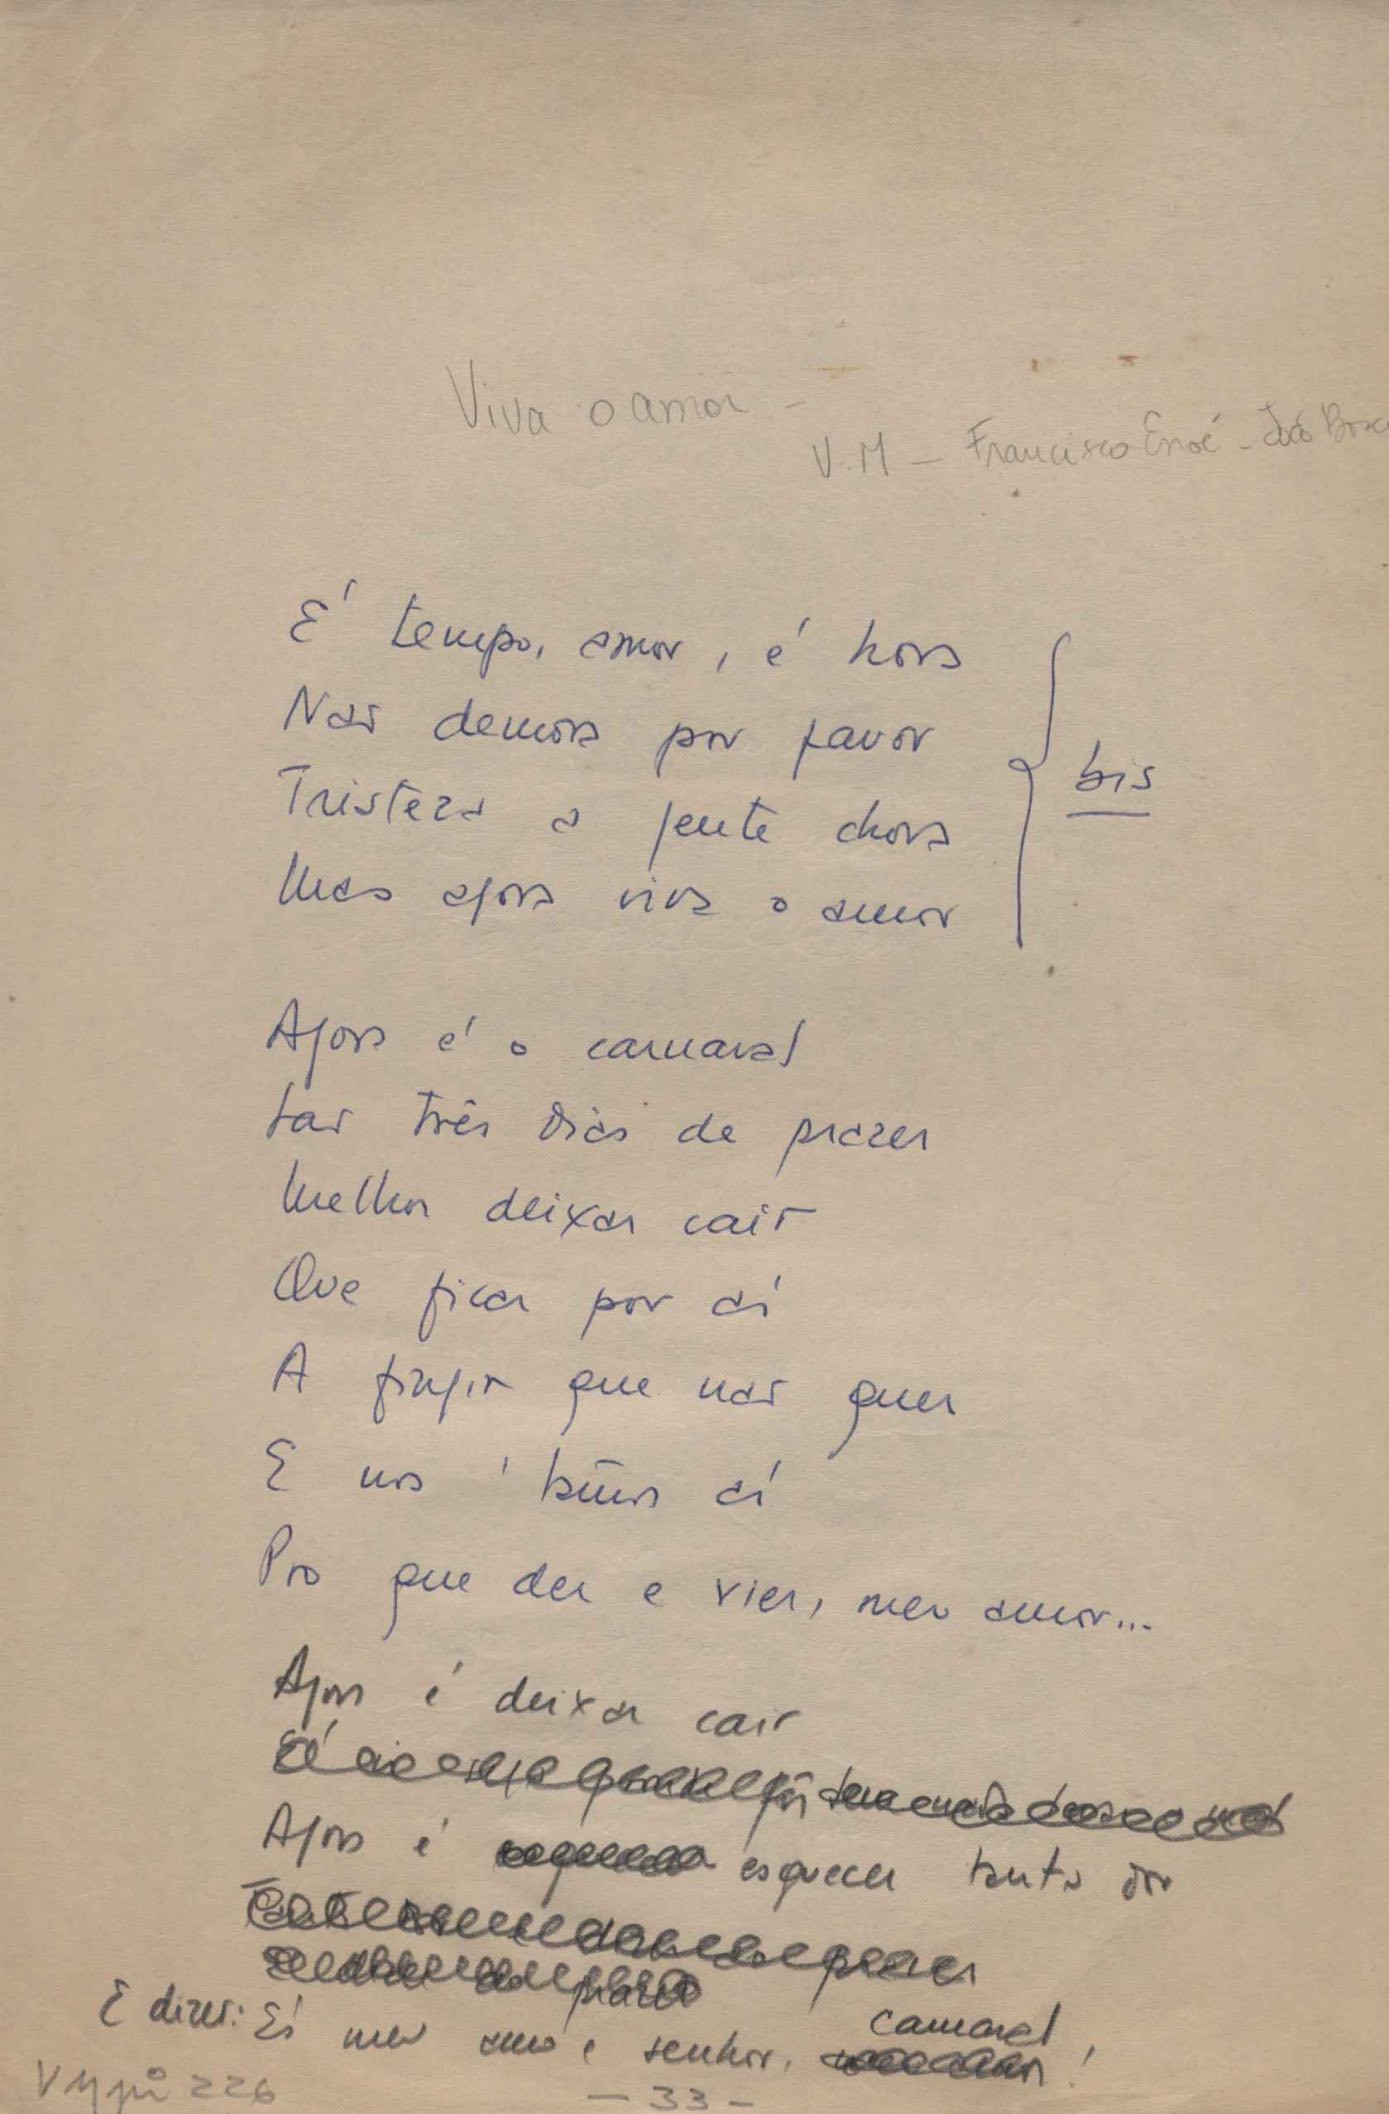 Viva o amor -
V.M - Francisco Enoé - João Bosco
É tempo, amor, é hora
Não demora por favor
Tristeza a gente chora
Mas agora viva o amor
bis
Agora é o carnaval
São três dias de prazer
Melhor deixar cair
Que ficar por aí
A fingir que não quer
E nós aí
Pro que der e vier, meu amor...
Agora é deixar cair
Agora é esquecer tanta dor
E dizer: És meu amo e senhor, carnaval!
- 33 -